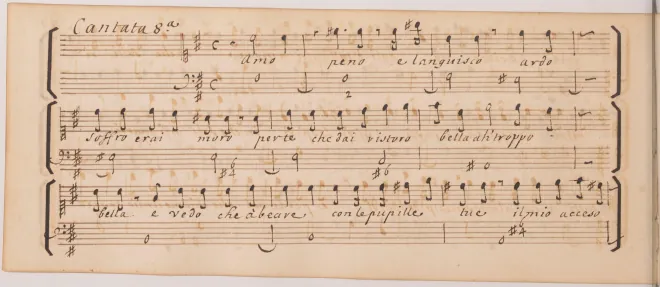 Cantata 8.a
amo peno e languisco ardo
2
soffro e rai moro per te che dai ristoro bella ah troppo
6
#4
#6
bella e vedo che a beare con le pupille tue il mio acceso
6
#4